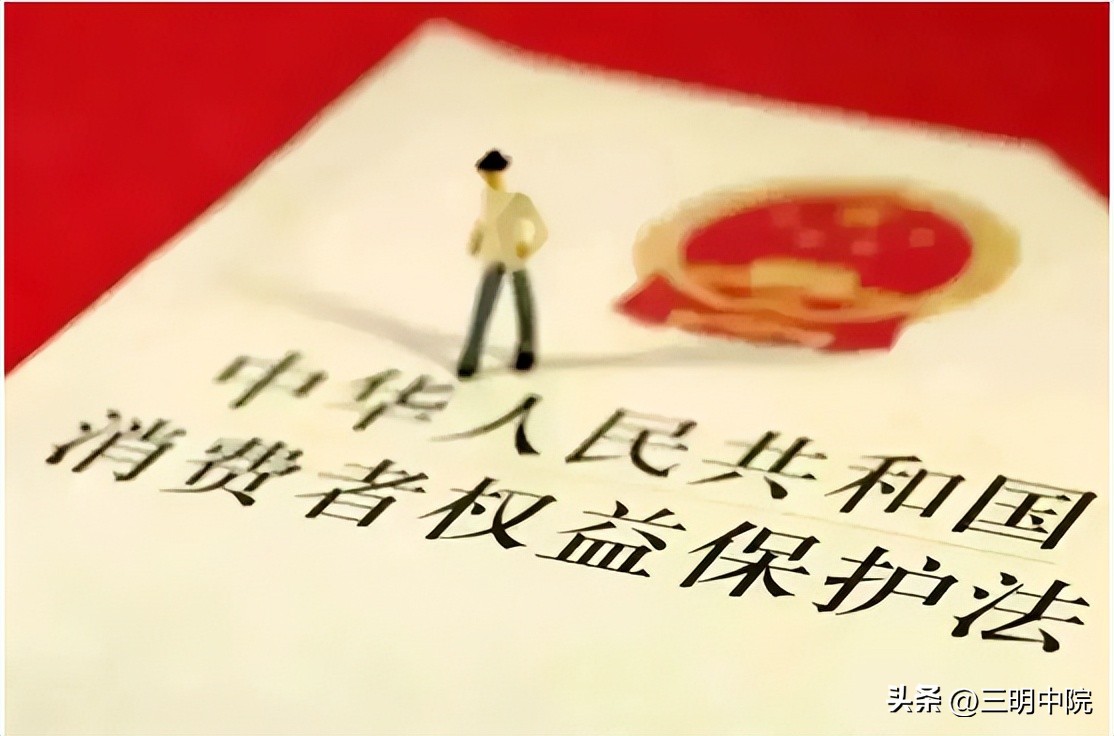 中华人民共和国
消费者权益保护法
头条 @三明中院